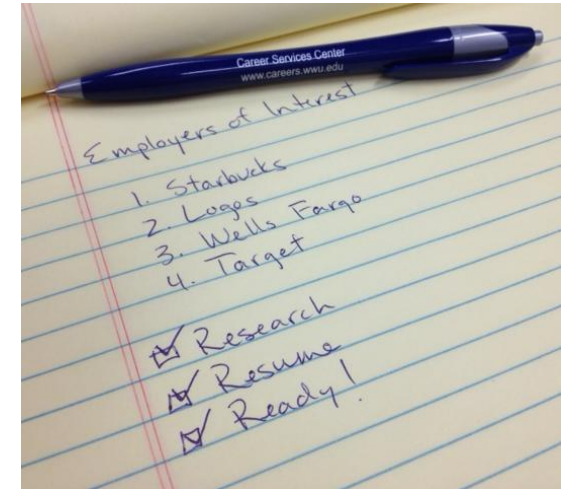 Career Services Center
www.careers.wwu.edu
Employers of Interest
1. Starbucks
2. Logos
3. Wells Fargo
4. Target
☑ Research
☑ Resume
☑ Ready!